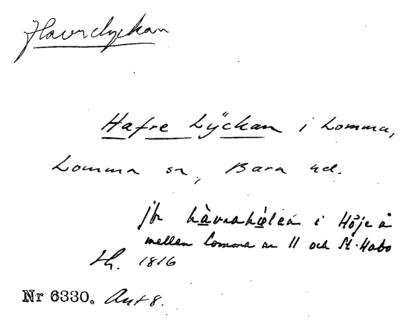 Havrelyckan
Hafre Lÿckan i Lomma,
Lomma sn, Bara hd.
jfr hàvrahølen i Höje å
mellan Lomma nr 11 och St. Habo
Sk. 1816
Nr 6330. Ant 8.